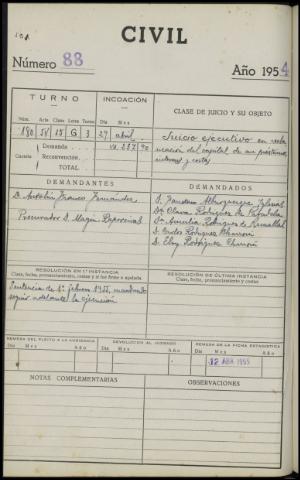 CIVIL
Número 88
Año 1954
TURNO
INCOACIÓN
CLASE DE JUICIO Y SU OBJETO
Núm. Año Clase Letra Turno Día Mes
180 54 15 G 3 27 abril
Juicio ejecutivo en
Cuantía
Demanda
Reconvención
TOTAL
del capital de un préstamo,
intereses y costas
DEMANDANTES
DEMANDADOS
D. Franco Fernández
Procurador D.
D. Alburquerque
Dª Clara Rodríguez de
Dª Aurelia Rodríguez de
D. Carlos Rodríguez
D. Eloy Rodríguez
RESOLUCIÓN EN 1ª INSTANCIA
Clase, fecha, pronunciamiento, costas y si fue firme o apelada
RESOLUCIÓN DE ÚLTIMA INSTANCIA
Clase, fecha, pronunciamiento, costas
Sentencia de 1º febrero 1955, mandando
seguir adelante la ejecución
REMESA DEL PLEITO A LA AUDIENCIA
DEVOLUCIÓN AL JUZGADO
REMESA DE LA FICHA ESTADÍSTICA
Día Mes Año
Día Mes Año
Día Mes Año
12 ABR 1955
NOTAS COMPLEMENTARIAS
OBSERVACIONES